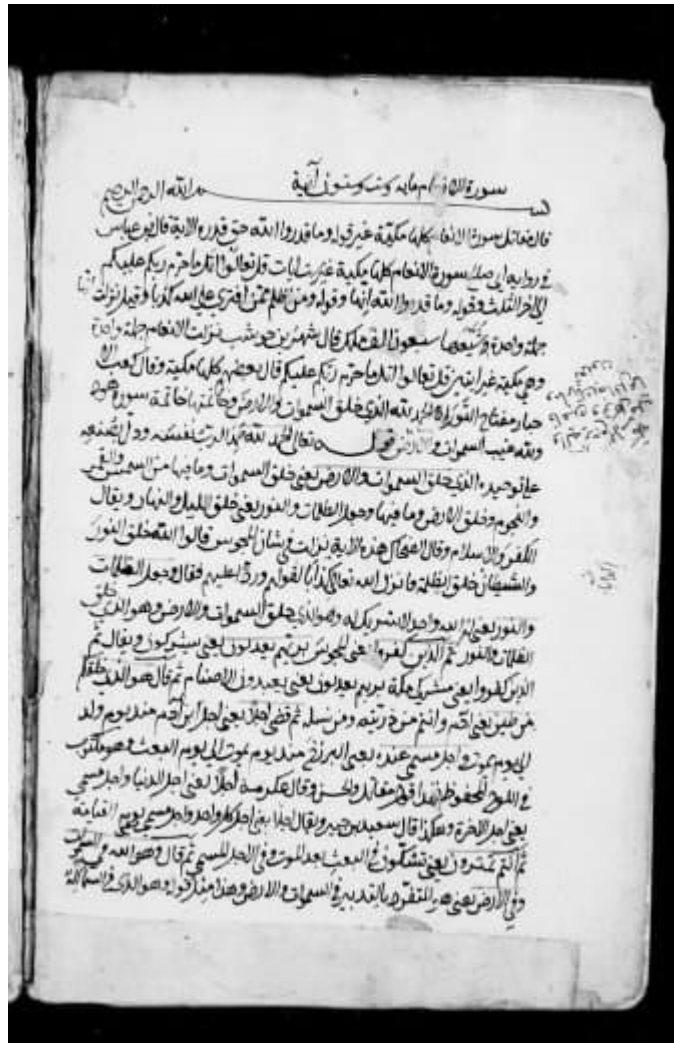 سورة الانعام مايه وخمس وستون آية
بسم الله الرحمن الرحيم
قال مقاتل سورة الانعام كلها مكية غير قوله وما قدروا الله حق قدره الاية قال ابن عباس
في رواية ابي صالح سورة الانعام كلها مكية غير ايات قل تعالوا اتل ما حرم ربكم عليكم
الي اخر الثلث وقوله وما قدروا الله وقوله ومن اظلم ممن افتري علي الله كذبا وقيل نزلت
جملة واحدة وشيعها سبعون الف ملك قال شهر بن حوشب نزلت الانعام جملة واحدة
وهي مكية غير ايتين قل تعالوا اتل ما حرم ربكم عليكم قال بعضهم كلها مكية وقال كعب الا
حبار مفتاح التورية الحمد لله الذي خلق السموات والارض وخاتمتها خاتمة سورة هود
ولله غيب السموات والارض قوله تعالي الحمد لله حمد الرب نفسه ودل بصنعه
علي توحيده الذي خلق السموات والارض يعني خلق السموات وما فيها من الشمس والقمر
والنجوم وخلق الارض وما فيها وجعل الظلمات والنور يعني خلق الليل والنهار ويقال
الكفر والاسلام وقال الضحاك هذه الاية نزلت في شان المجوس قالوا الله خلق النور
والشيطان خلق الظلمة فانزل الله تعالي اكذابا لقولهم وردا عليهم فقال وجعل الظلمات
والنور يعني الله واحد لا شريك له وهو الذي خلق السموات والارض وهو الذي خلق
الظلمات والنور ثم الذين كفروا يعني المجوس بربهم يعدلون يعني يشركون ويقال ثم
الذين كفروا يعني مشركي مكة بربهم يعدلون يعني يعبدون الاصنام ثم قال هو الذي خلقكم
من طين يعني ادم وانتم من ذريته ومن نسله ثم قضي اجلا يعني اجل ابن ادم منذ يوم ولد
الي يوم يموت واجل مسمي عنده يعني البرزخ منذ يوم يموت الي يوم البعث وهو مكتوب
في اللوح المحفوظ هذا قول مقاتل والحسن وقال عكرمة اجلا يعني اجل الدنيا واجل مسمي
يعني اجل الاخرة وهكذا قال سعيد بن جبير ويقال اجلا يعني اجل كل واحد واجل مسمي يعني يوم القيامة
ثم انتم تمترون يعني تشكون في البعث بعد الموت وفي الاجل المسمي ثم قال وهو الله في السموات
وفي الارض يعني هو المتفرد بالتدبير في السموات والارض وهذا مثل قوله وهو الذي في السماء اله